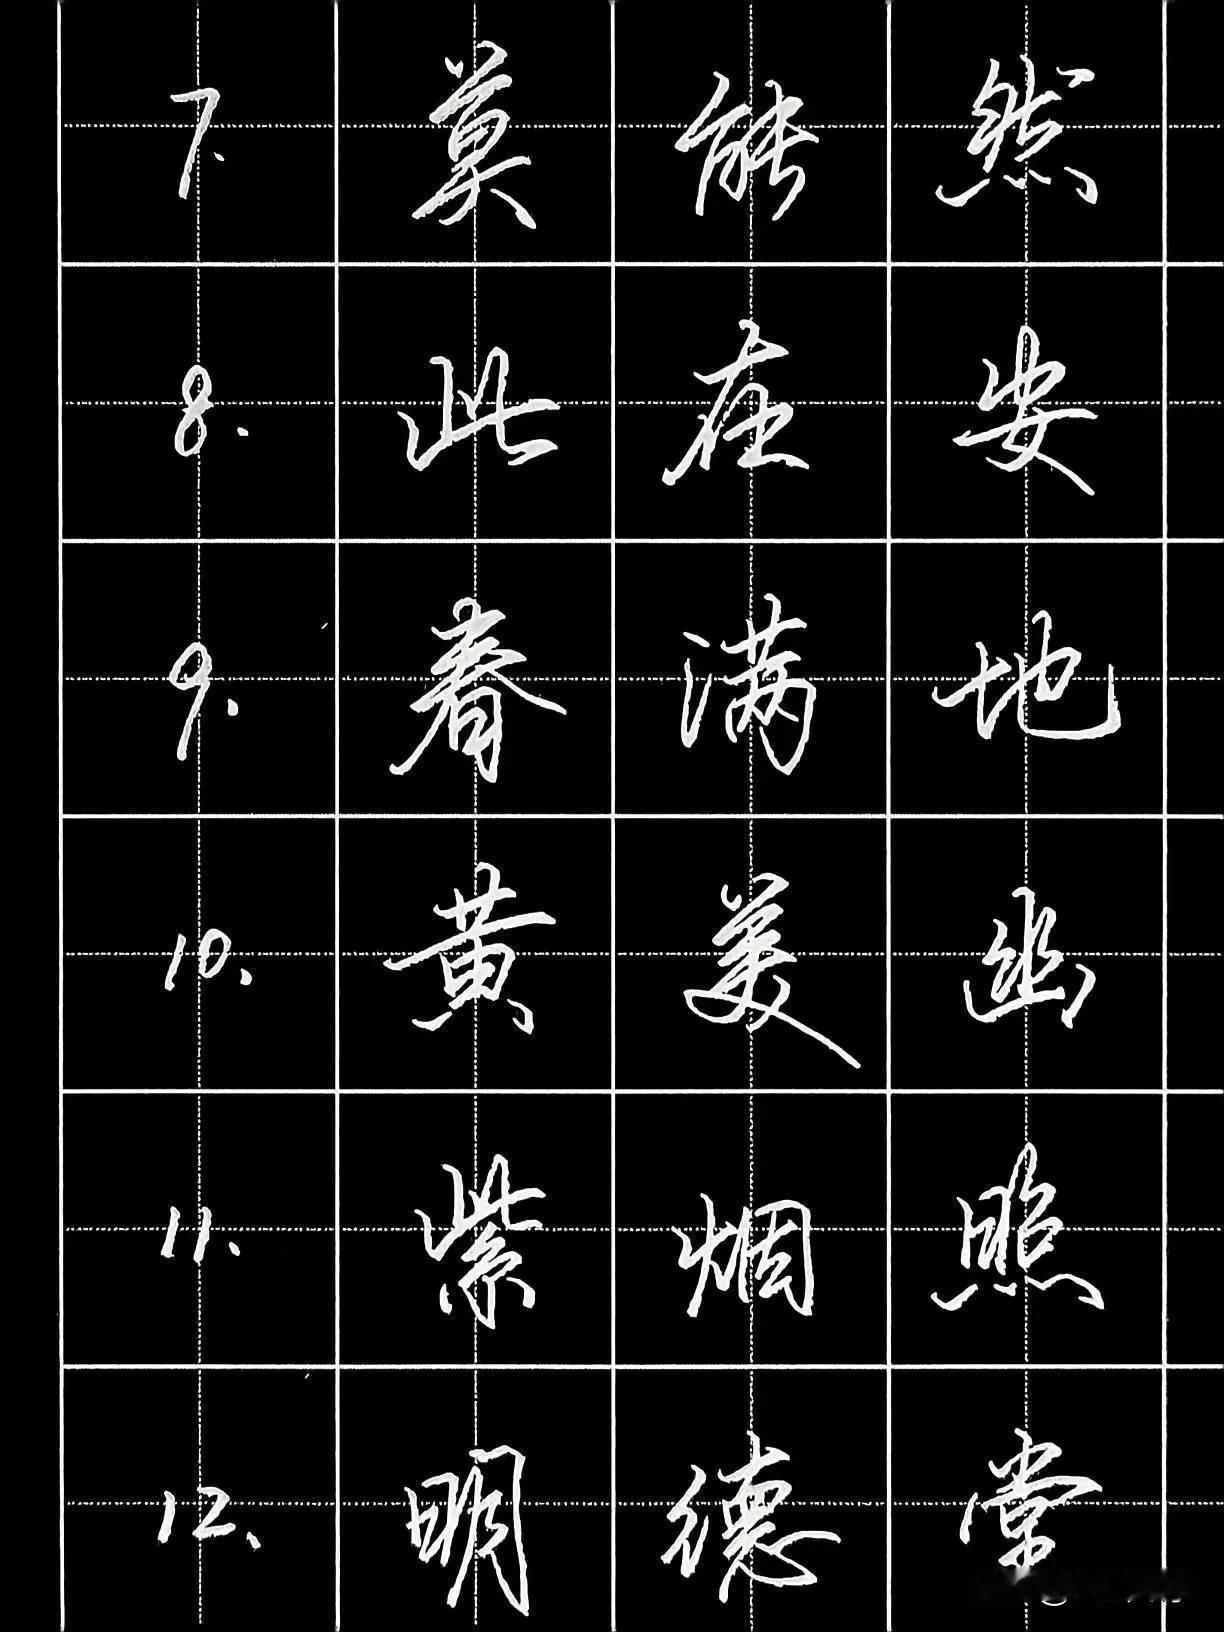 7. 莫 能 然
8. 此 在 安
9. 春 满 地
10. 黄 美 幽
11. 紫 烟 照
12. 明 德